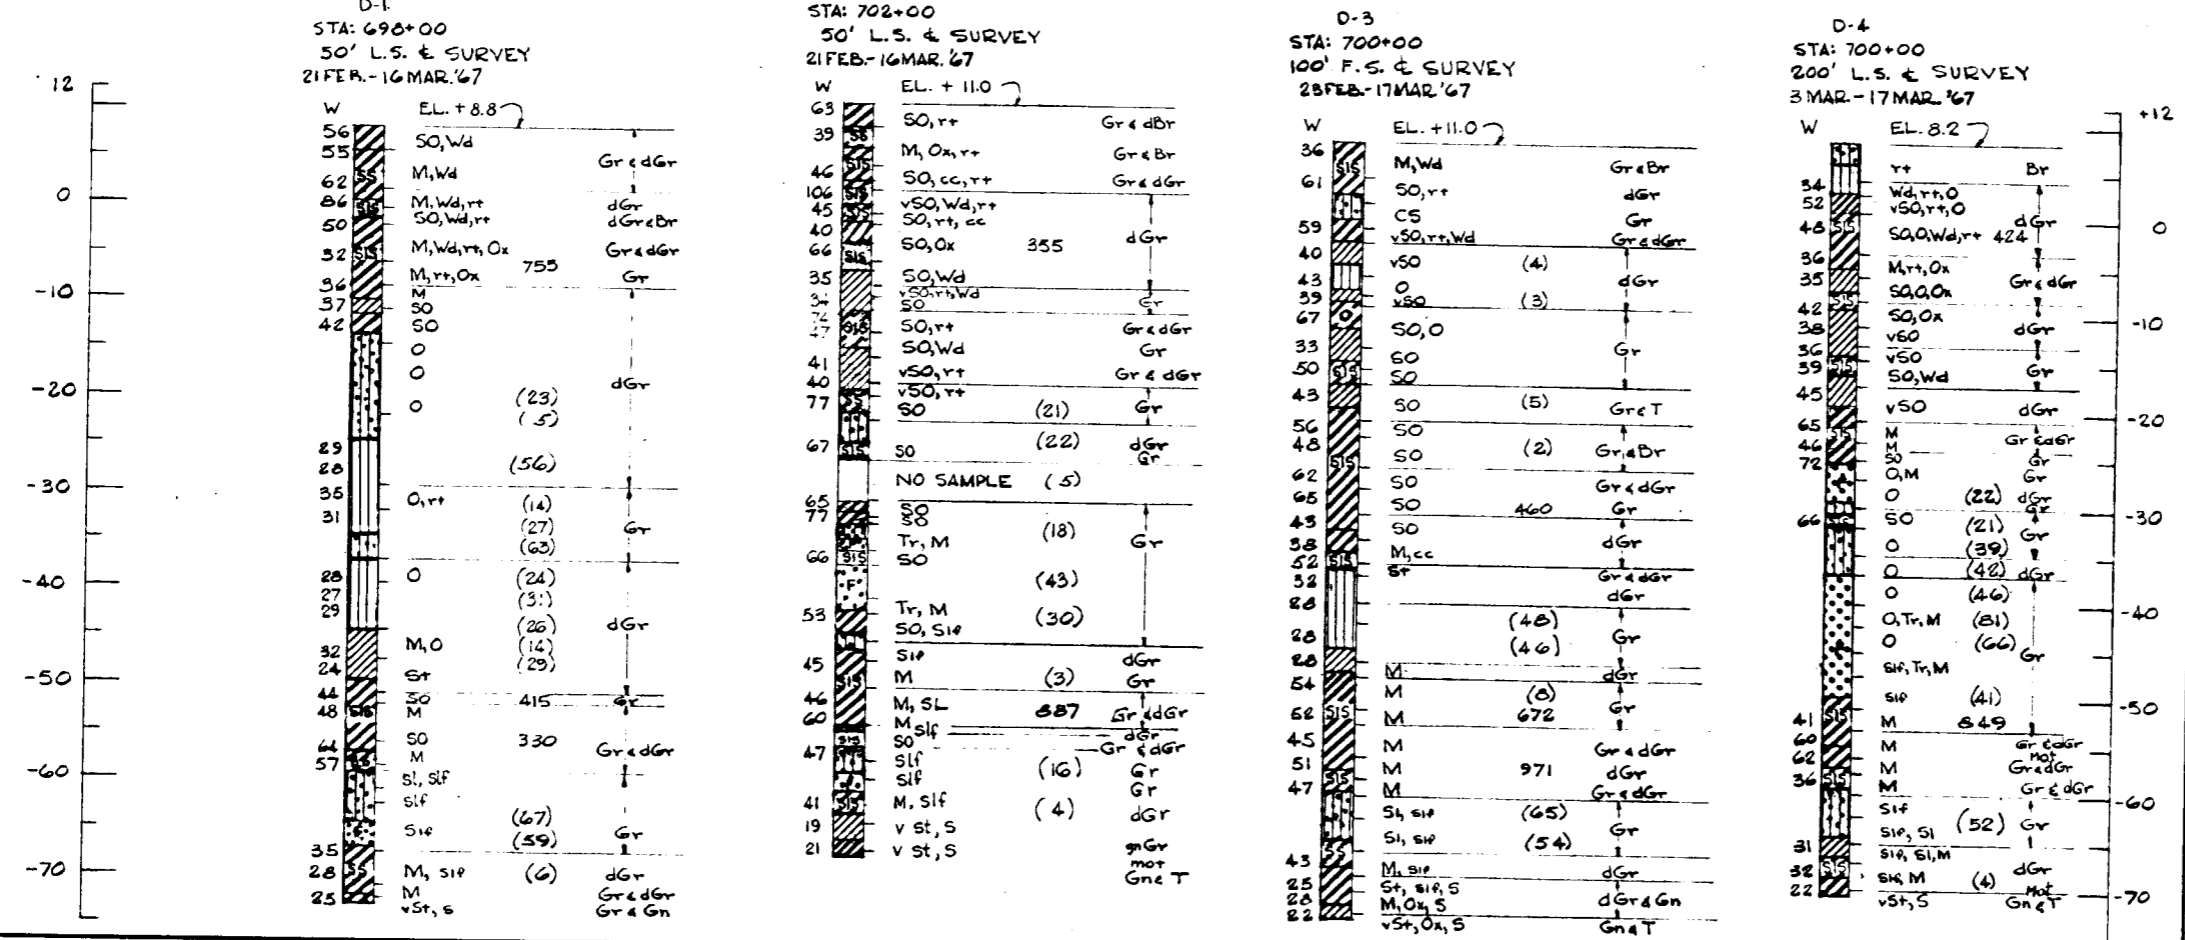 D-1
STA: 698+00
50' L.S. ℄ SURVEY
21 FEB.-16 MAR.'67
W EL. +8.8
12
0
-10
-20
-30
-40
-50
-60
-70
56 SO,Wd
55 Gr & dGr
62 SS M,Wd
86 SIS M,Wd,rt dGr
50 SO,Wd,rt dGr&Br
52 SIS M,Wd,rt,Ox Gr&dGr
755
36 M,rt,Ox Gr
37 M
SO
42 SO
O
O dGr
(23)
O
(5)
29
28 (56)
35 O,rt (14)
31 (27) Gr
(63)
28 O (24)
27 (31)
29 (26) dGr
32 M,O (14)
24 (29)
St
44 SO 415 Gr
48 SIS M
64 SO 330 Gr&dGr
57 SS M
Sl, Slf
Slf
(67)
Slf (59) Gr
35
28 SS M, Slf (6) dGr
25 M Gr&dGr
vSt, S Gr & Gn
STA: 702+00
50' L.S. ℄ SURVEY
21 FEB.-16 MAR.'67
W EL. + 11.0
63 SO,rt Gr & dBr
39 SS
M, Ox,rt Gr&Br
46 SIS SO,cc,rt Gr&dGr
106 SIS vSO,Wd,rt
45 SIS SO,rt,cc
40 dGr
66 SIS SO,Ox 355
35 SO,Wd
34 vSO,rt,Wd
SO Gr
47 SIS SO,rt Gr&dGr
SO,Wd Gr
41 vSO,rt Gr & dGr
40 vSO,rt
77 SS SO (21) Gr
67 SIS SO (22) dGr
Gr
NO SAMPLE (5)
65 SO
77 SO
(18)
Tr, M Gr
66 SIS SO
F (43)
53 Tr, M (30)
SO, Slf
45 Slf dGr
SIS M (3) Gr
46 M, SL 887 Gr&dGr
60 M Slf dGr
SIS SO Gr & dGr
47 Slf (16) Gr
Slf Gr
41 SIS M, Slf (4) dGr
19 v St, S
21 v St, S gnGr
mot
Gn& T
D-3
STA: 700+00
100' F.S. ℄ SURVEY
23 FEB.-17 MAR '67
W EL. +11.0
36 SIS M,Wd Gr&Br
61 SO,rt dGr
CS Gr
59 vSO,rt,Wd Gr&dGr
40 vSO (4)
43 O dGr
39 vSO (3)
67 O SO,O
33 SO Gr
50 SIS SO
43 SO (5) Gr&T
56 SO
48 SIS SO (2) Gr&Br
62 SO Gr&dGr
65 SO 460 Gr
43 SO
38 dGr
52 SIS M,cc
32 St Gr&dGr
28 dGr
(48)
28 (46) Gr
28 M dGr
54 M (8)
52 SIS M 672 Gr
45 M Gr&dGr
51 SIS M 971 dGr
47 M Gr&dGr
Sl, Slf (65)
Gr
SS Sl, Slf (54)
43 M, Slf dGr
25 St, Slf, S
28 M,Ox,S dGr&Gn
22 vSt, Ox, S Gn&T
D-4
STA: 700+00
200' L.S. ℄ SURVEY
3 MAR.-17 MAR. '67
W EL. 8.2
+12
0
-10
-20
-30
-40
-50
-60
-70
rt Br
34 Wd,rt,O
52 vSO,rt,O dGr
48 SIS SO,O,Wd,rt 424
36 M,rt,Ox
35 Gr&dGr
SIS SO,O,Ox
42 SO,Ox
38 vSO dGr
36 vSO
39 SIS Gr
SO,Wd
45 vSO dGr
65 M
46 SIS M Gr&dGr
72 SO Gr
O,M Gr
O (22) dGr
Gr
66 SO (21) Gr
O (39)
O (42) dGr
O (46)
O,Tr,M (81)
O (66) Gr
Slf,Tr,M
Slf (41)
41 SIS M 849
60 M Gr&dGr
62 M Mot
Gr&dGr
36 SIS M Gr&dGr
Slf
Slf, Sl (52) Gr
31 Slf, Sl,M
32 SIS dGr
Slf, M (4) Mot
22 vSt, S Gn&T